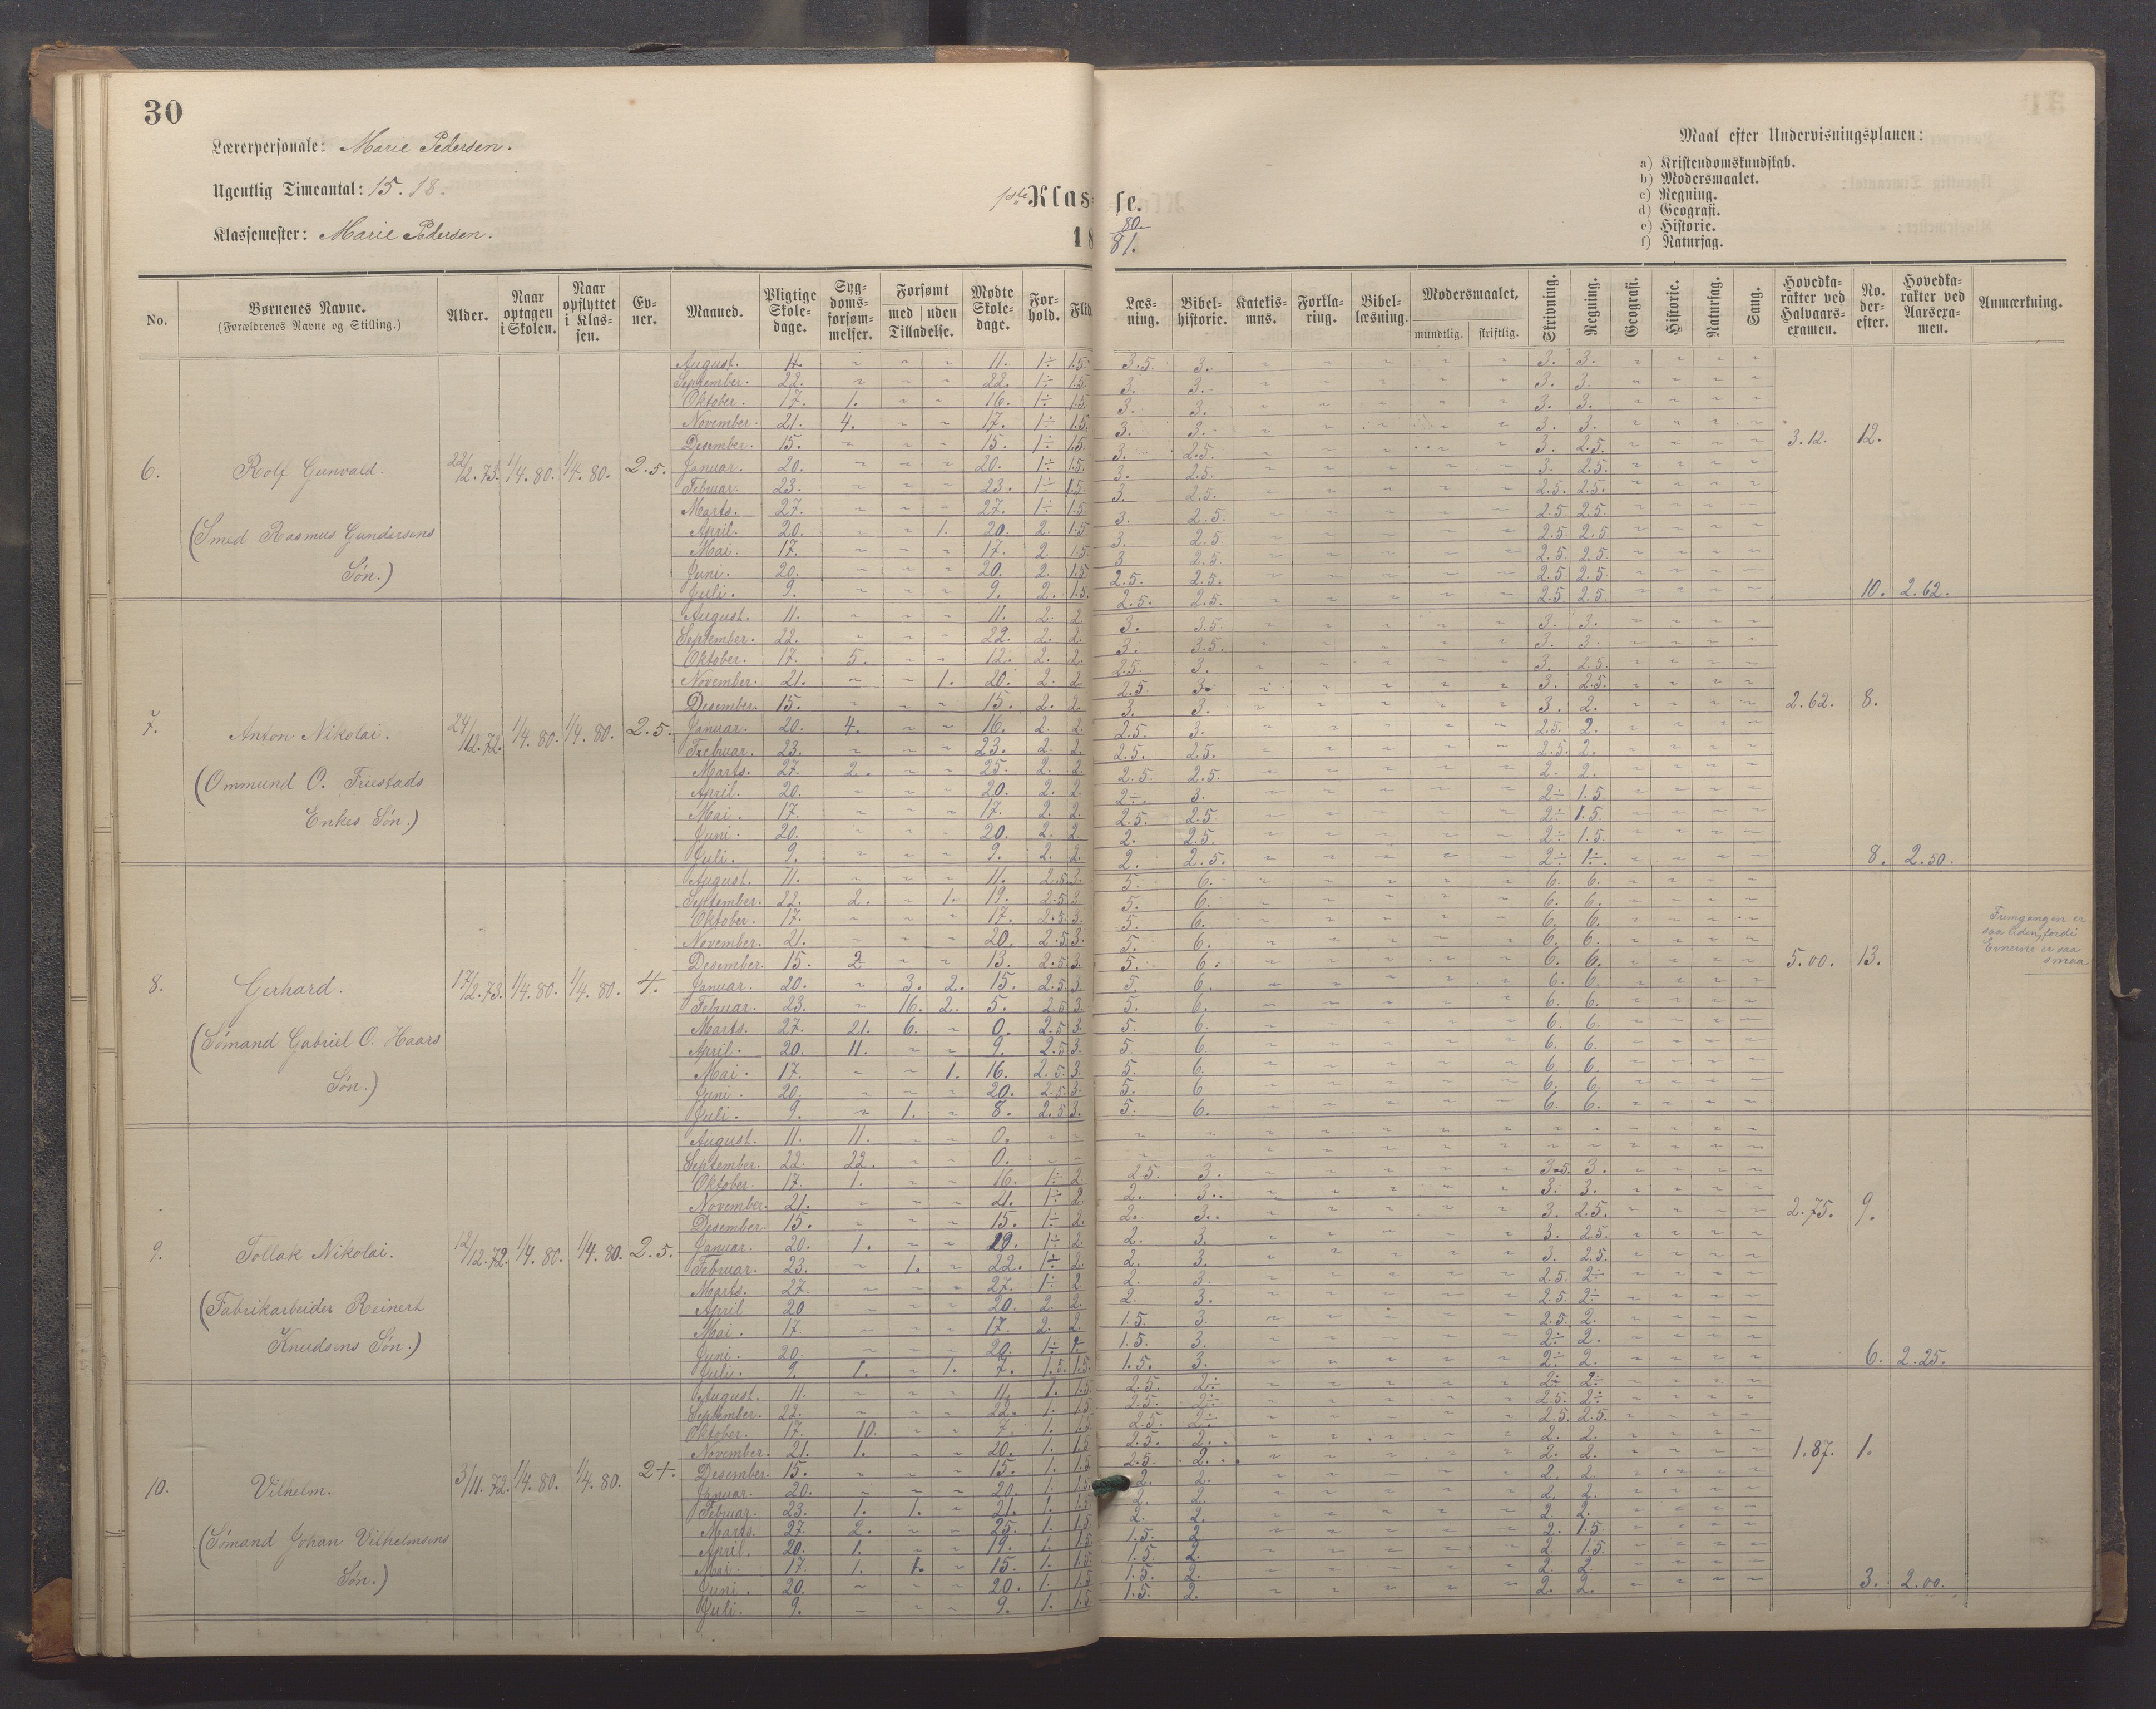 30
Lærerpersonale: Marie Pedersen.
Ugentlig Timeantal: 15. 18.
Klassemester: Marie Pedersen.
1ste Klasse.
18 80. 81.
Maal efter Undervisningsplanen:
a) Kristendomskundskab.
b) Modersmaalet.
c) Regning.
d) Geografi.
e) Historie.
f) Naturfag.
No. Børnenes Navne. (Forældrenes Navne og Stilling.) Alder. Naar optagen i Skolen. Naar opflyttet i Klassen. Evner. Maaned. Pligtige Skoledage. Sygdomsforsømmelser. Forsømt med uden Tilladelse. Mødte Skoledage. Forhold. Flid. Læsning. Bibelhistorie. Katekismus. Forklaring. Bibellæsning. Modersmaalet, mundtlig. skriftlig. Skrivning. Regning. Geografi. Historie. Naturfag. Sang. Hovedkarakter ved Halvaarsexamen. No. derefter. Hovedkarakter ved Aarsexamen. Anmærkning.
6. Rolf Gunvald. 22/12.73. 1/4.80. 1/4.80. 2.5.
(Smed Rasmus Gundersens
Søn.)
August. 11. 1÷ 1.5. 3.5. 3. 3. 3.
September. 22. 22. 1÷ 1.5. 3. 3. 3. 3.
Oktober. 17. 1. 16. 1÷ 1.5. 3. 3. 3. 3.
November. 21. 4. 17. 1÷ 1.5. 3. 3. 3. 3.
Desember. 15. 15. 1÷ 1.5. 3. 2.5. 3. 2.5. 3.12. 12.
Januar. 20. 20. 1÷ 1.5. 3. 2.5. 3. 2.5.
Februar. 23. 23. 1÷ 1.5 3. 2.5. 2.5. 2.5.
Marts. 27. 27. 1÷ 1.5. 3. 2.5. 2.5. 2.5.
April. 20. 1. 20. 2. 1.5 3. 2.5 2.5 2.5
Mai. 17. 17. 2. 1.5 3 2.5 2.5 2.5
Juni. 20. 20. 2. 1.5. 2.5. 2.5. 2.5 2.5.
Juli. 9. 9. 2. 1.5. 2.5. 2.5. 2.5 2.5. 10. 2.62.
7. Anton Nikolai. 24/12.72. 1/4.80. 1/4.80. 2.5.
(Ommund O. Fruestads
Enkes Søn.)
August. 11. 11. 2. 2. 3. 3.5. 3. 3.
September. 22. 22. 2. 2. 3. 3.5. 3. 3.
Oktober. 17. 5. 12. 2. 2. 2.5. 3. 3. 2.5.
November. 21. 1. 20. 2. 2. 2.5. 3. 3. 2.5.
Desember. 15. 15. 2. 2. 3. 3. 3. 2. 2.62. 8.
Januar. 20. 4. 16. 2. 2. 2.5. 3. 2.5. 2.
Februar. 23. 23. 2. 2. 2.5. 2.5. 2.5. 2.
Marts. 27. 2. 25. 2. 2. 2.5. 2.5. 2. 2.
April. 20. 20. 2. 2. 2÷. 3. 2÷ 1.5.
Mai. 17. 17. 2. 2. 2.5. 2.5. 2÷ 1.5.
Juni. 20. 20. 2. 2. 2. 2.5. 2÷ 1.5.
Juli. 9. 9. 2. 2. 2. 2.5. 2÷ 1÷. 8. 2.50.
8. Gerhard. 17/12.73. 1/4.80. 1/4.80. 4.
(Sømand Gabriel O. Haars
Søn.)
August. 11. 11. 2.5. 3. 5. 6. 6. 6.
September. 22. 2. 1. 19. 2.5. 3. 5. 6. 6. 6.
Oktober. 17. 17. 2.5. 3. 5. 6. 6. 6.
November. 21. 20. 2.5. 3. 5. 6. 6. 6.
Desember. 15. 2 13. 2.5. 3. 5. 6. 6. 6. 5.00. 13.
Januar. 20. 3. 2. 15. 2.5. 3. 5. 6. 6. 6.
Februar. 23. 16. 2. 5. 2.5 3. 5. 6. 6. 6.
Marts. 27. 21. 6. 0. 2.5 3. 5. 6. 6. 6.
April. 20. 11. 9. 2.5 3. 5. 6. 6. 6.
Mai. 17. 1. 16. 2.5. 3. 5. 6. 6. 6.
Juni. 20. 20. 2.5 3. 5. 6 6. 6.
Juli. 9. 1. 8. 2.5 3. 5. 6. 6. 6.
Fremgangen er
saa liden, fordi
Evnerne er saa
smaa
9. Tollak Nikolai. 12/12.72. 1/4.80. 1/4.80. 2.5.
(Fabrikarbeider Reinert
Knudsens Søn.)
August. 11. 11. 0.
September. 22. 22. 0.
Oktober. 17. 1. 16. 1÷ 2. 2.5. 3. 3.5. 3.
November. 21. 21. 1÷ 2. 2. 3. 3. 3.
Desember. 15. 15. 1÷ 2. 2. 3. 3. 2.5. 2.75. 9.
Januar. 20. 1. 19. 1÷ 2. 2. 3. 3. 2.5.
Februar. 23. 1. 22. 1÷ 2. 2. 3. 3. 2.5.
Marts. 27. 27. 1÷ 2. 2. 3. 2.5. 2÷
April 20 20. 2. 2. 2. 3. 2.5. 2÷
Mai. 17. 17. 2. 2. 1.5. 3. 2.5. 2.
Juni. 20. 20. 1÷ 2 1.5. 3. 2÷ 2.
Juli. 9. 1. 1. 7. 1.5. 1.5. 1.5. 3. 2÷ 2. 6. 2.25.
10. Vilhelm. 3/11.72. 1/4.80. 1/4.80. 2+.
(Sømand Johan Vilhelmsens
Søn.)
August. 11. 11. 1. 1.5 2.5. 2÷ 2÷ 2÷
September. 22. 22. 1. 1.5. 2.5. 2÷ 2.5. 2÷
Oktober. 17. 10. 7. 1. 1.5 2.5. 2÷ 2.5. 2.5.
November. 21. 1. 20. 1. 1.5 2.5. 2. 2. 2.
Desember. 15. 15. 1. 1.5 2.5. 2. 2. 2. 1.87. 1.
Januar. 20. 20. 1. 1.5 2. 2. 2. 2.
Februar. 23. 1. 1. 21. 1. 2. 2. 2. 2.
Marts. 27. 2. 25. 1. 1.5. 2. 2. 2. 2.
April. 20. 1. 19. 1. 1.5 1.5. 2 2. 1.5.
Mai. 17. 1. 1. 15. 1. 1.5 1.5. 2. 2. 1.5.
Juni. 20. 20. 1. 1.5 1.5. 2. 2. 2.
Juli. 9. 9. 1. 1.5. 1.5. 2. 2. 2. 3. 2.00.